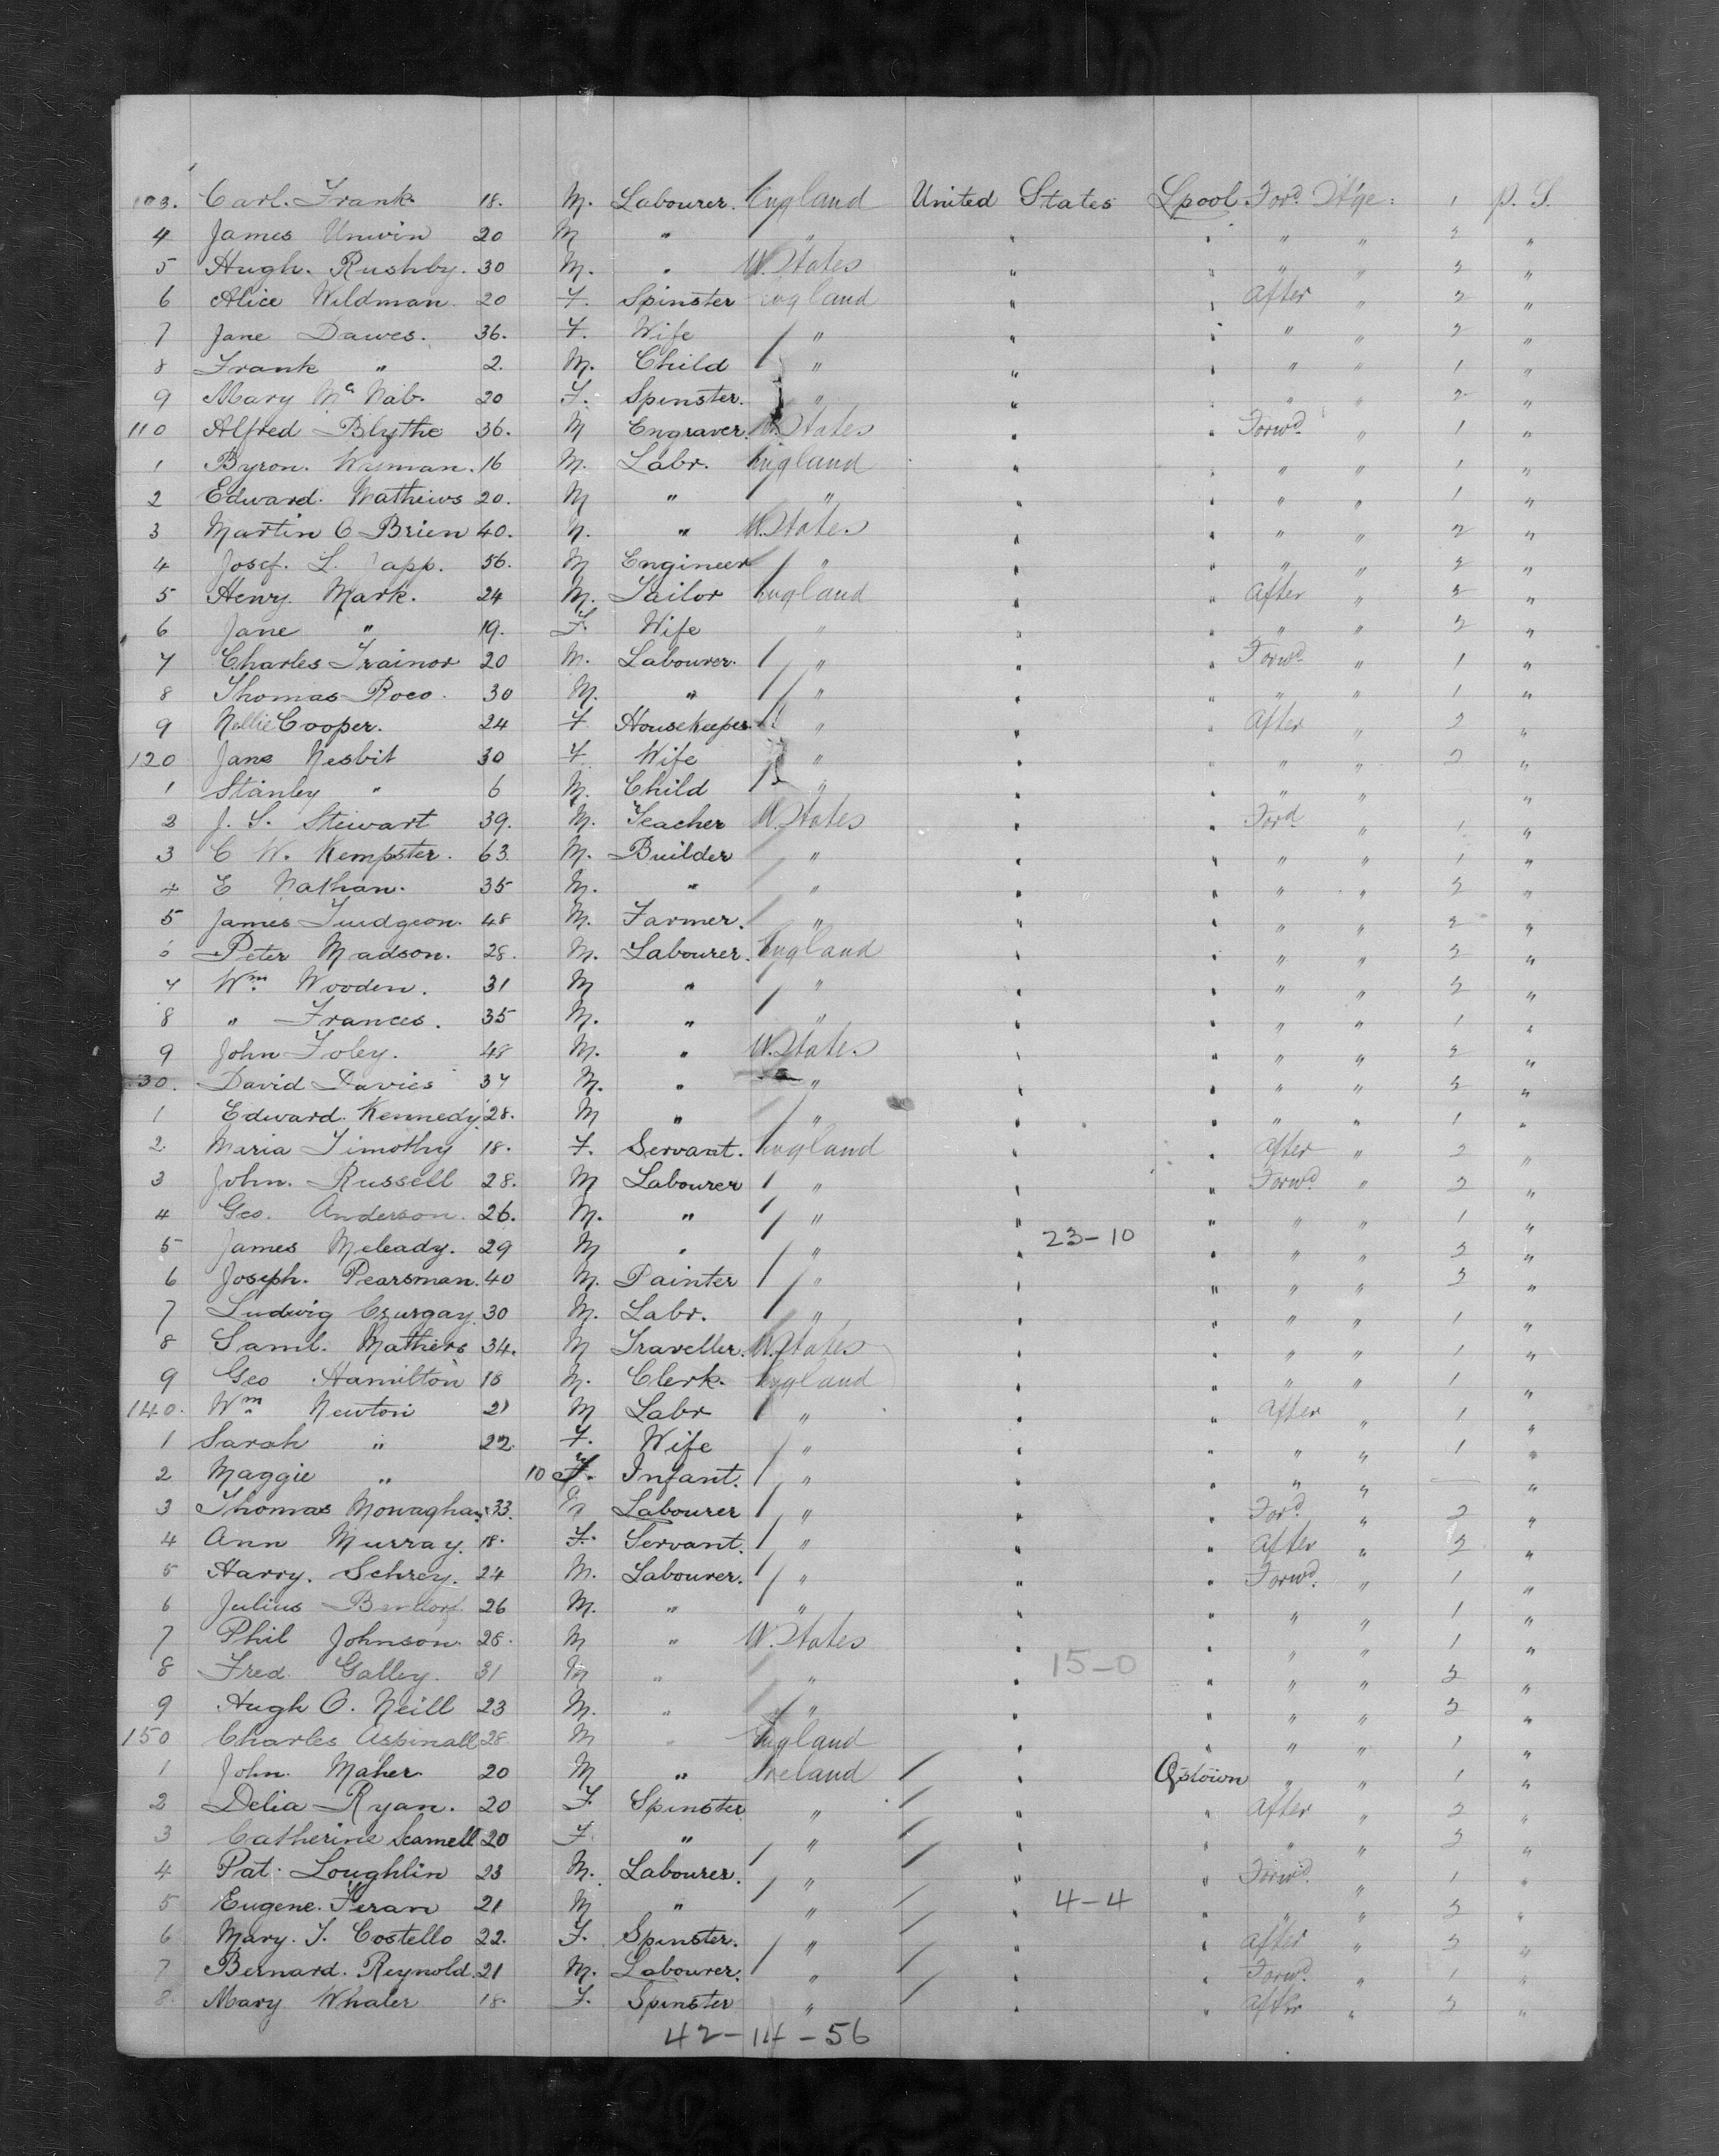 103. Carl. Frank. 18. M. Labourer. England United States Lpool. Ford. St'ge. 1 P. S.
4 James Unwin 20 M " " " " " " 2 "
5 Hugh. Rushby. 30 M. " U. States " " " " 2 "
6 Alice Wildman. 20 F. Spinster England " " After " 2 "
7 Jane Dawes. 36. F. Wife " " " " " 2 "
8 Frank " 2. M. Child " " " " " 1 "
9 Mary Mc Nab. 20 F. Spinster. " " " " " 2 "
110 Alfred Blythe 36. M Engraver. U. States " " Forwd. " 1 "
1 Byron. Wyman. 16 M. Labr. England " " " " 1 "
2 Edward. Mathews 20. M " " " " " " 1 "
3 Martin O Brien 40. M. " U. States " " " " 2 "
4 Josef. L. 56. M Engineer " " " " " 2 "
5 Henry. Mark. 24 M. Tailor England " " After " 2 "
6 Jane " 19. F. Wife " " " " " 2 "
7 Charles Trainor 20 M. Labourer. " " " Forwd. " 1 "
8 Thomas Roco. 30 M. " " " " " " 1 "
9 Nellie Cooper. 24 F Housekeeper " " " After " 2 "
120 Jane Nesbit 30 F. Wife " " " " " 2 "
1 Stanley " 6 M. Child " " " " " "
2 J. S. Stewart 39. M. Teacher U. States " " Ford. " 1 "
3 C W. Kempster. 63. M. Builder " " " " " 1 "
4 E Nathan. 35 M. " " " " " " 2 "
5 James Tudgeon. 48 M. Farmer. " " " " " 2 "
6 Peter Madson. 28. M. Labourer. England " " " " 2 "
7 Wm. Wooden. 31 M " " " " " " 2 "
8 " Frances. 35 M. " " " " " " 1 "
9 John Foley. 48 M. " U. States " " " " 2 "
30. David Davies 37 M. " " " " " " 2 "
1 Edward. Kennedy 28. M " " " " " " 1 "
2. Maria Timothy 18. F. Servant. England " " After " 2 "
3 John. Russell 28. M Labourer " " " Forwd. " 2 "
4 Geo. Anderson. 26. M. " " " " " " 1 "
23-10
5 James Meleady. 29 M " " " " " " 2 "
6 Joseph. Pearsman. 40 M. Painter " " " " " 2 "
7 Ludwig Czurgay. 30 M. Labr. " " " " " 1 "
8 Saml. Mathers 34. M Traveller. U. States " " " " 1 "
9 Geo Hamilton 18 M. Clerk. England " " " " 1 "
140. Wm. Newton 21 M Labr " " " After " 1 "
1 Sarah " 22. F. Wife " " " " " 1 "
2 Maggie " 10 F. Infant. " " " " " — "
3 Thomas Monaghan. 33. M Labourer " " " Ford. " 2 "
4 Ann Murray. 18. F. Servant. " " " After " 2 "
5 Harry. Schrey. 24 M. Labourer. " " " Forwd. " 1 "
6 Julius 26 M. " " " " " " 1 "
7 Phil Johnson. 28. M " U. States " " " " 1 "
15-0
8 Fred. Galley. 31 M " " " " " " 2 "
9 Hugh O. Neill 23 M. " " " " " " 2 "
150 Charles Aspinall 28. M " England " " " " 1 "
1 John. Maher 20 M " Ireland " Qstown " " 1 "
2 Delia Ryan. 20 F. Spinster " " " After " 2 "
3 Catherine Scamell 20 F. " " " " " " 2 "
4 Pat. Loughlin 23 M. Labourer. " " " Forwd. " 1 "
5 Eugene. Feran 21 M " " " 4-4 " " " 2 "
6 Mary. T. Costello 22. F. Spinster. " " " After " 2 "
7 Bernard. Reynold. 21 M. Labourer. " " " Forwd. " 1 "
8. Mary Whaler 18. F. Spinster " " " After " 2 "
42-14-56